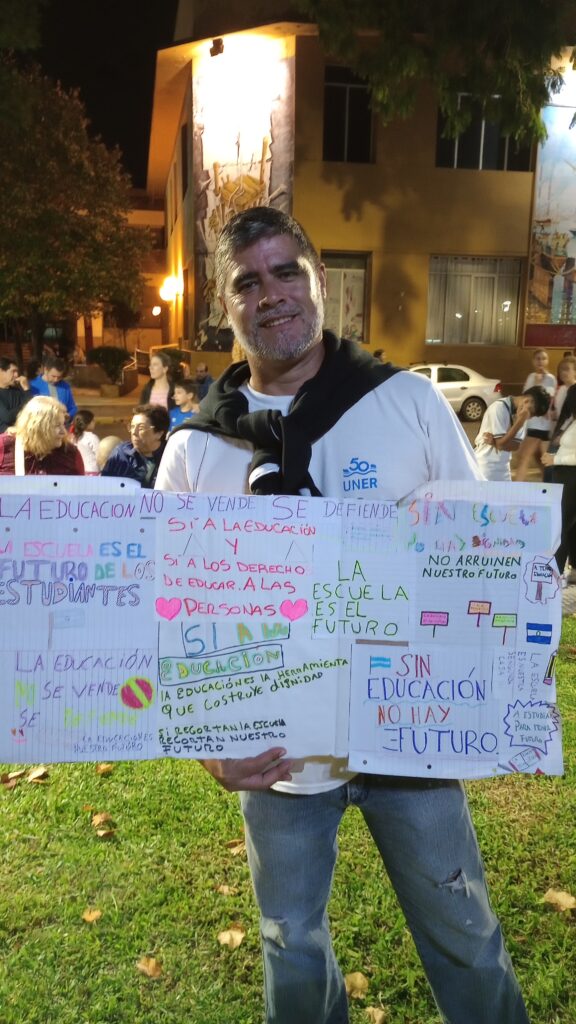 50
UNER
LA EDUCACION NO SE VENDE SE DEFIENDE
LA ESCUELA ES EL
FUTURO DE LOS
ESTUDIANTES
LA EDUCACIÓN
NO SE VENDE
SE
LA EDUCACION ES
NUESTRO FUTURO
SI A LA EDUCACIÓN
Y
SI A LOS DERECHO
DE EDUCAR. A LAS
PERSONAS
SI A LA
EDUCACION
LA EDUCACIÓN ES LA HERRAMIENTA
QUE COSTRUYE DIGNIDAD
SI RECORTAN LA ESCUELA
RECORTAN NUESTRO
FUTURO
LA
ESCUELA
ES EL
FUTURO
SIN ESCUE
NO HAY DIGNIDAD
NO ARRUINEN
NUESTRO FUTURO
SIN
EDUCACIÓN
NO HAY
FUTURO
LA
ESCUELA
ES NUESTRA
SEGUNDA
CASA
A ESTUDIAR
PARA TENER
FUTURO